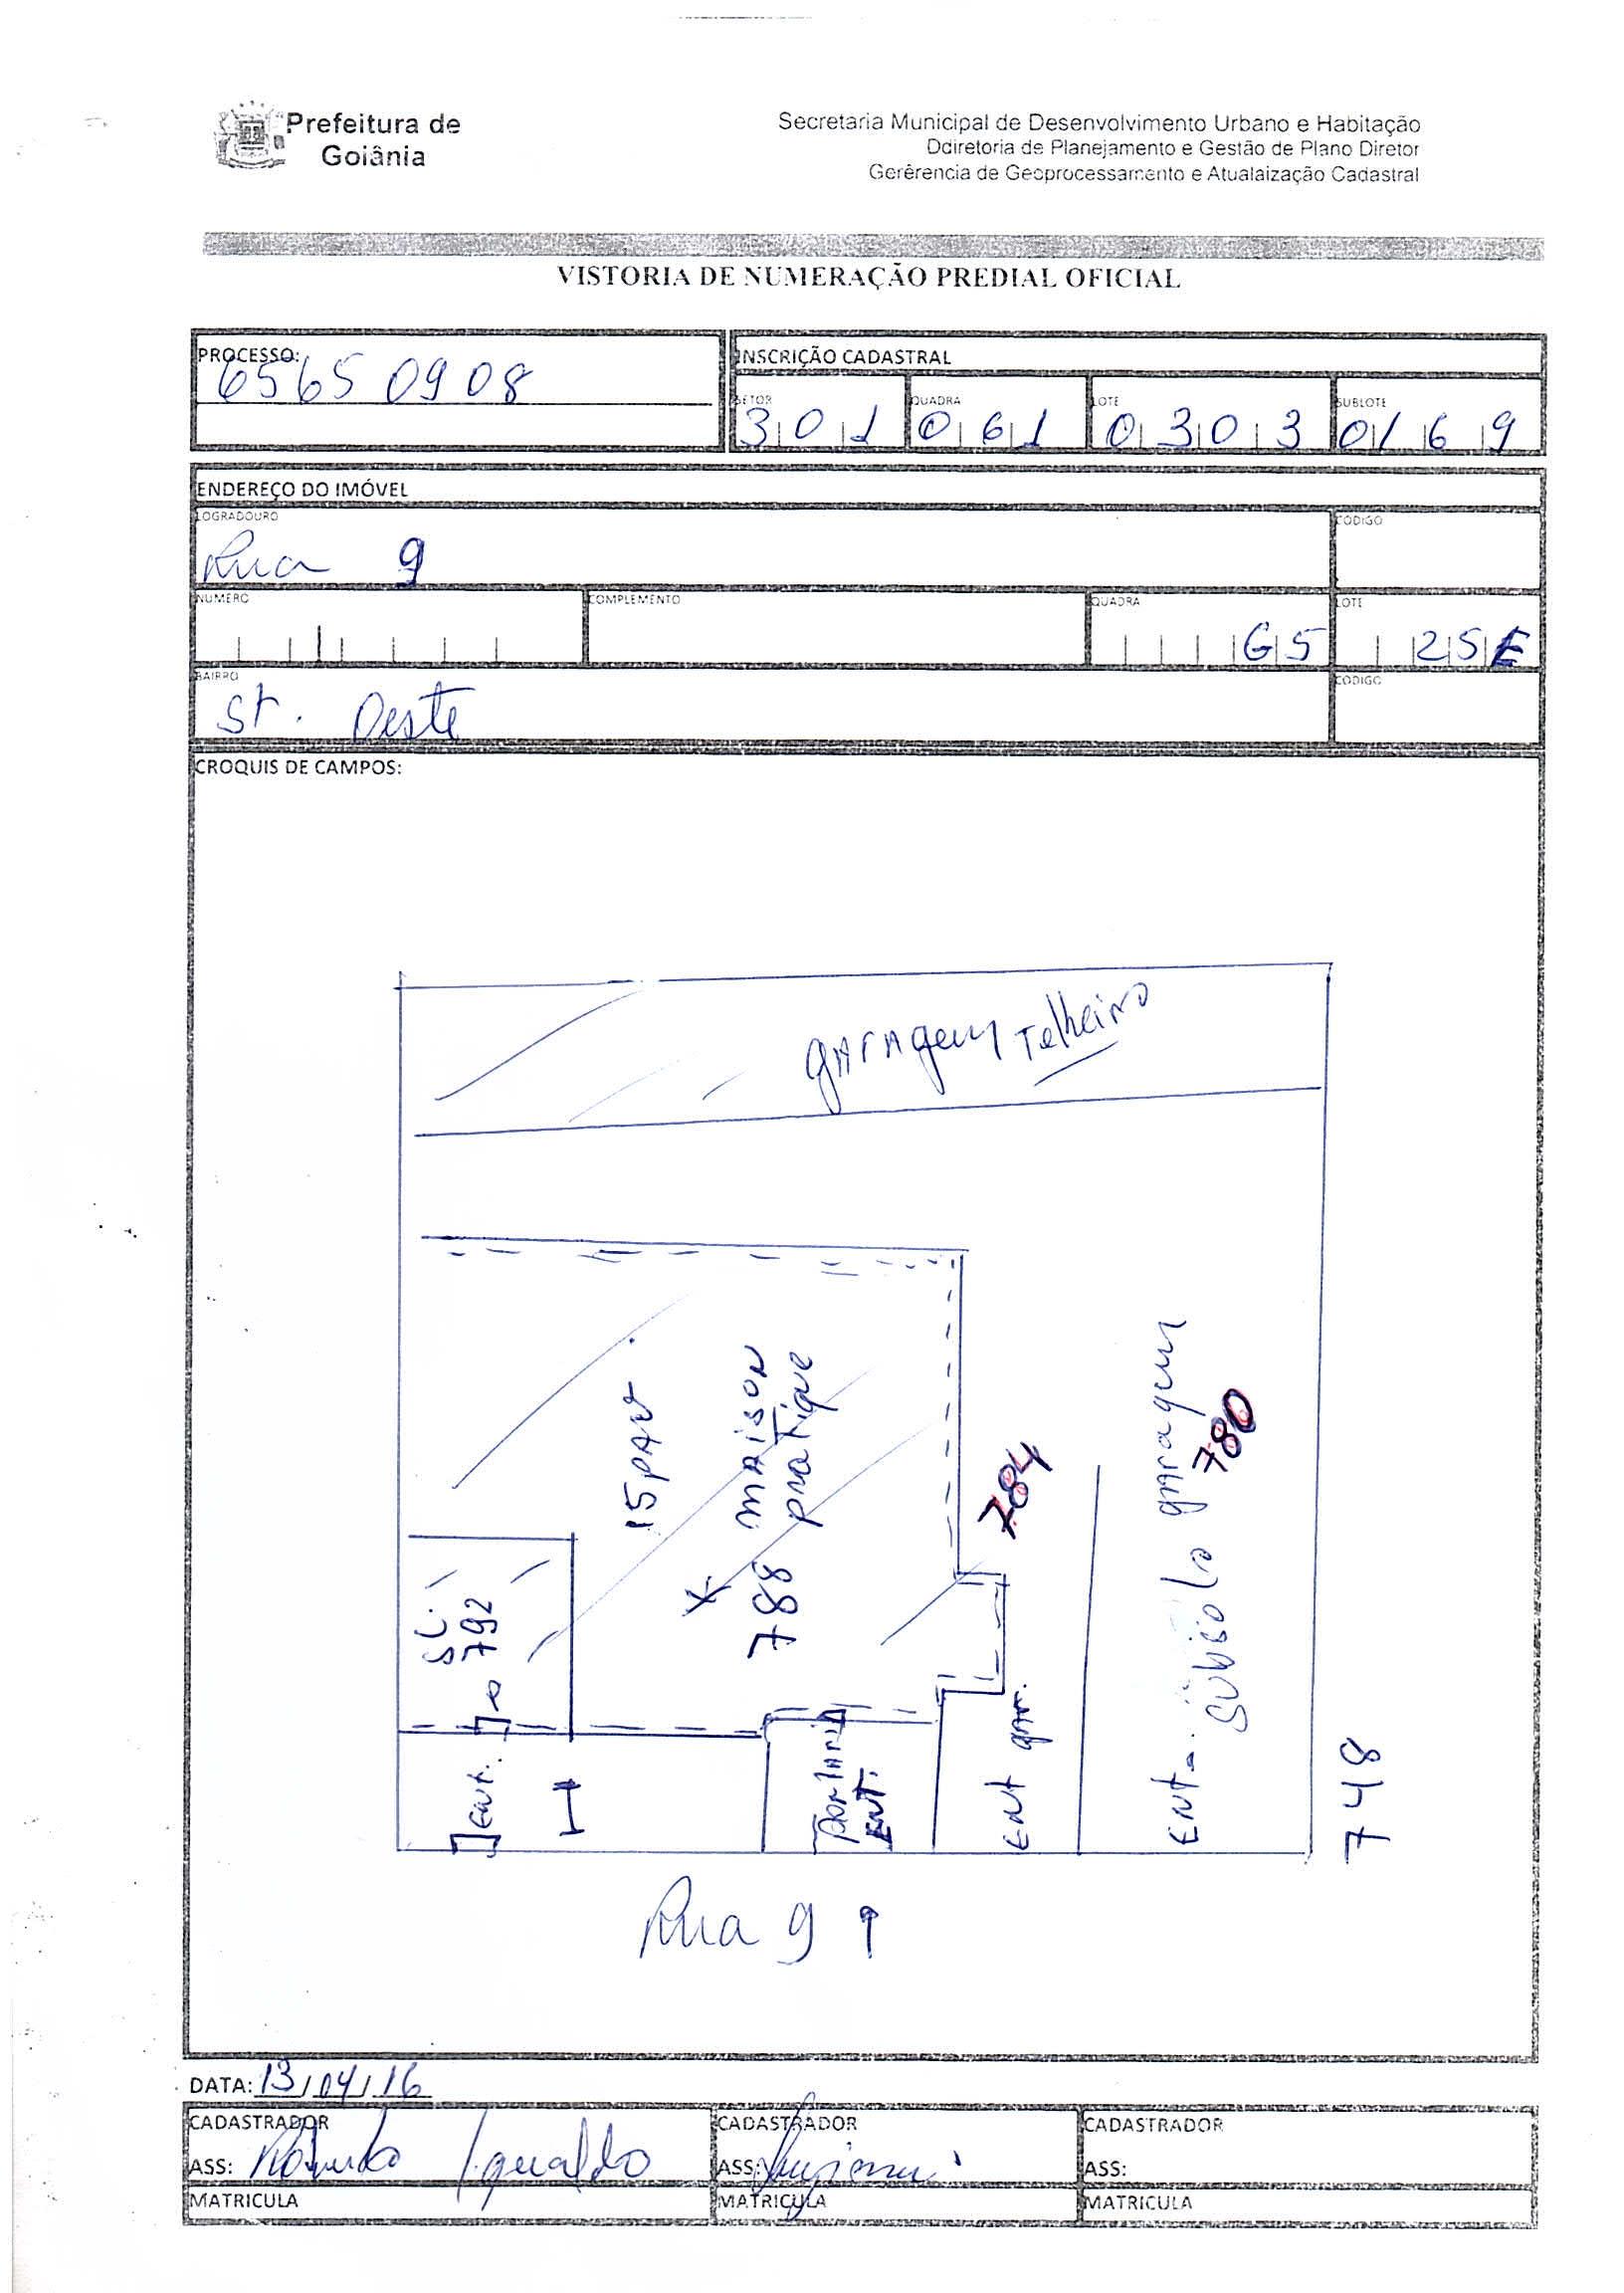 Prefeitura de
Goiânia
Secretaria Municipal de Desenvolvimento Urbano e Habitação
Ddiretoria de Planejamento e Gestão de Plano Diretor
Gerêrencia de Geoprocessamento e Atualaização Cadastral
VISTORIA DE NUMERAÇÃO PREDIAL OFICIAL
PROCESSO:
65650908
INSCRIÇÃO CADASTRAL
SETOR
301
QUADRA
061
LOTE
0303
SUBLOTE
0169
ENDEREÇO DO IMÓVEL
LOGRADOURO
Rua 9
CODIGO
NUMERO
COMPLEMENTO
QUADRA
G5
LOTE
25E
BAIRRO
St. Oeste
CODIGO
CROQUIS DE CAMPOS:
garagem Telheiro
15 pav.
788 maison
pratique
SL.
792
784
780
Ent.
portaria
Ent.
Ent gar.
Ent. Subsolo garagem
748
Rua 9
DATA: 13/04/16
CADASTRADOR
ASS:
MATRICULA
CADASTRADOR
ASS:
MATRICULA
CADASTRADOR
ASS:
MATRICULA